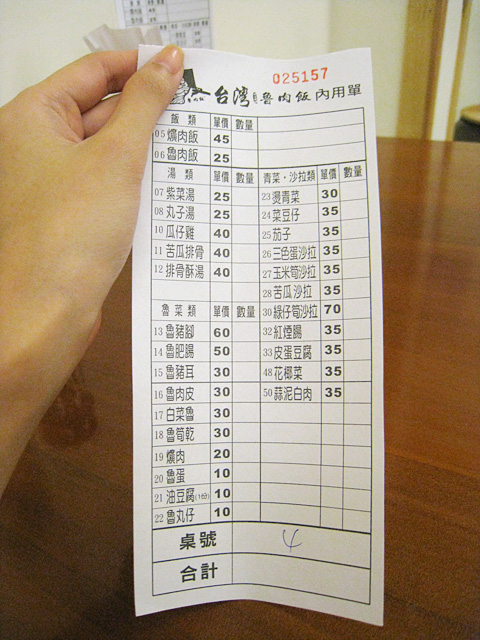 025157
台灣魯肉飯 內用單
飯類 單價 數量
05 爌肉飯 45
06 魯肉飯 25
湯類 單價 數量
07 紫菜湯 25
08 丸子湯 25
10 瓜仔雞 40
11 苦瓜排骨 40
12 排骨酥湯 40
魯菜類 單價 數量
13 魯豬腳 60
14 魯肥腸 50
15 魯豬耳 30
16 魯肉皮 30
17 白菜魯 30
18 魯筍乾 30
19 爌肉 20
20 魯蛋 10
21 油豆腐(1份) 10
22 魯丸仔 10
青菜・沙拉類 單價 數量
23 燙青菜 30
24 菜豆仔 35
25 茄子 35
26 三色蛋沙拉 35
27 玉米筍沙拉 35
28 苦瓜沙拉 35
30 綠仔筍沙拉 70
32 紅煙腸 35
33 皮蛋豆腐 35
48 花椰菜 35
50 蒜泥白肉 35
桌號 4
合計